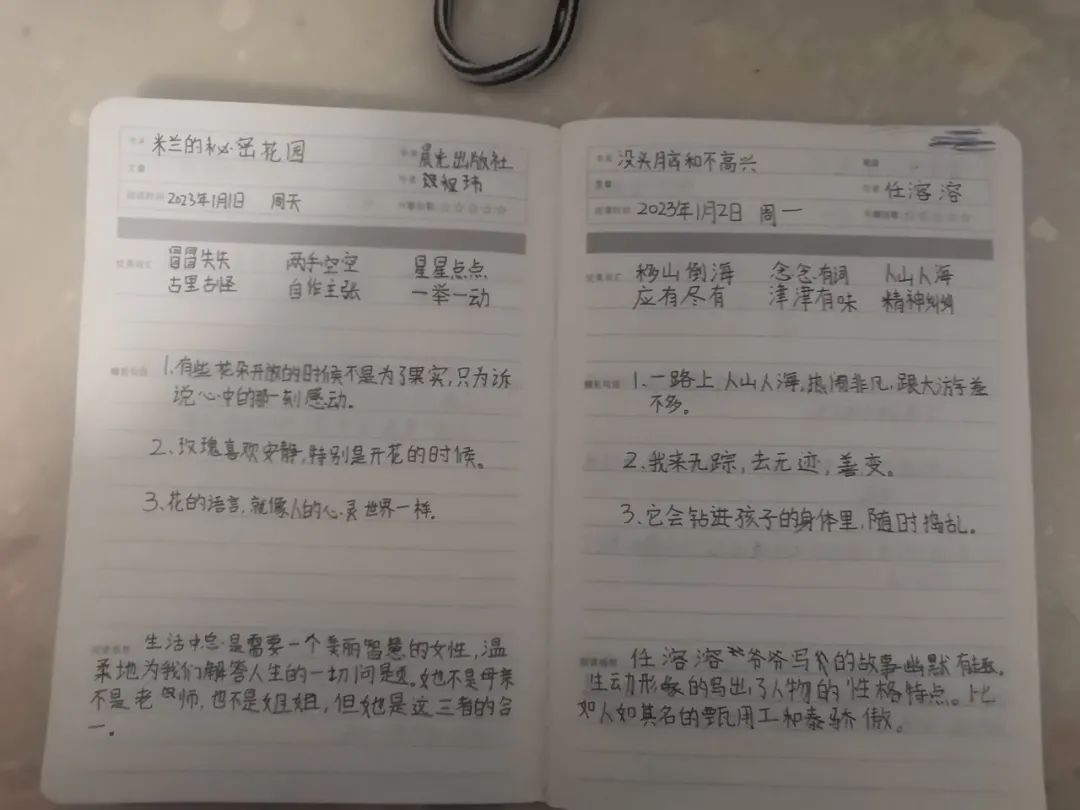 书名 米兰的秘密花园
晨光出版社
文章
作者 殷健玮
阅读时间 2023年1月1日 周天
☆☆☆☆☆
优美词汇 冒冒失失 两手空空 星星点点
古里古怪 自作主张 一举一动
精彩句段 1、有些花朵开放的时候不是为了果实,只为诉
说心中的那一刻感动。
2、玫瑰喜欢安静,特别是开花的时候。
3、花的语言,就像人的心灵世界一样。
阅读感想 生活中总是需要一个美丽智慧的女性,温
柔地为我们解答人生的一切问题。她也不是母亲
不是老师,也不是姐姐,但她是这三者的合
一。
书名 没头脑和不高兴
文章
作者 任溶溶
阅读时间 2023年1月2日 周一
☆☆☆☆☆
优美词汇 移山倒海 念念有词 人山人海
应有尽有 津津有味 精神
精彩句段 1、一路上人山人海,热闹非凡,跟大游行差
不多。
2、我来无踪,去无迹,善变。
3、它会钻进孩子的身体里,随时捣乱。
阅读感想 任溶溶爷爷写的故事幽默有趣。
生动形象的写出了人物的性格特点。比
如人如其名的甄用工和泰骄傲。